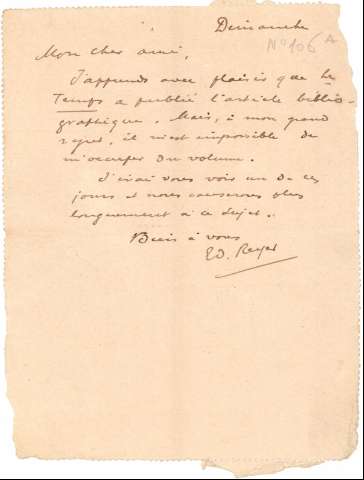 Dimanche
N° 106 A
Mon cher ami,
J'apprends avec plaisir que le
Temps a publié l'article biblio-
graphique. Mais, à mon grand
regret, il m'est impossible de
m'occuper du volume.
J'irai vous voir un de ces
jours et nous causerons plus
longuement à ce sujet.
Bien à vous
Ed.